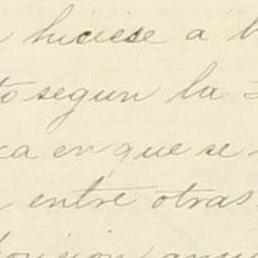 hiciese a
to segun la
ca en que se
entre otras